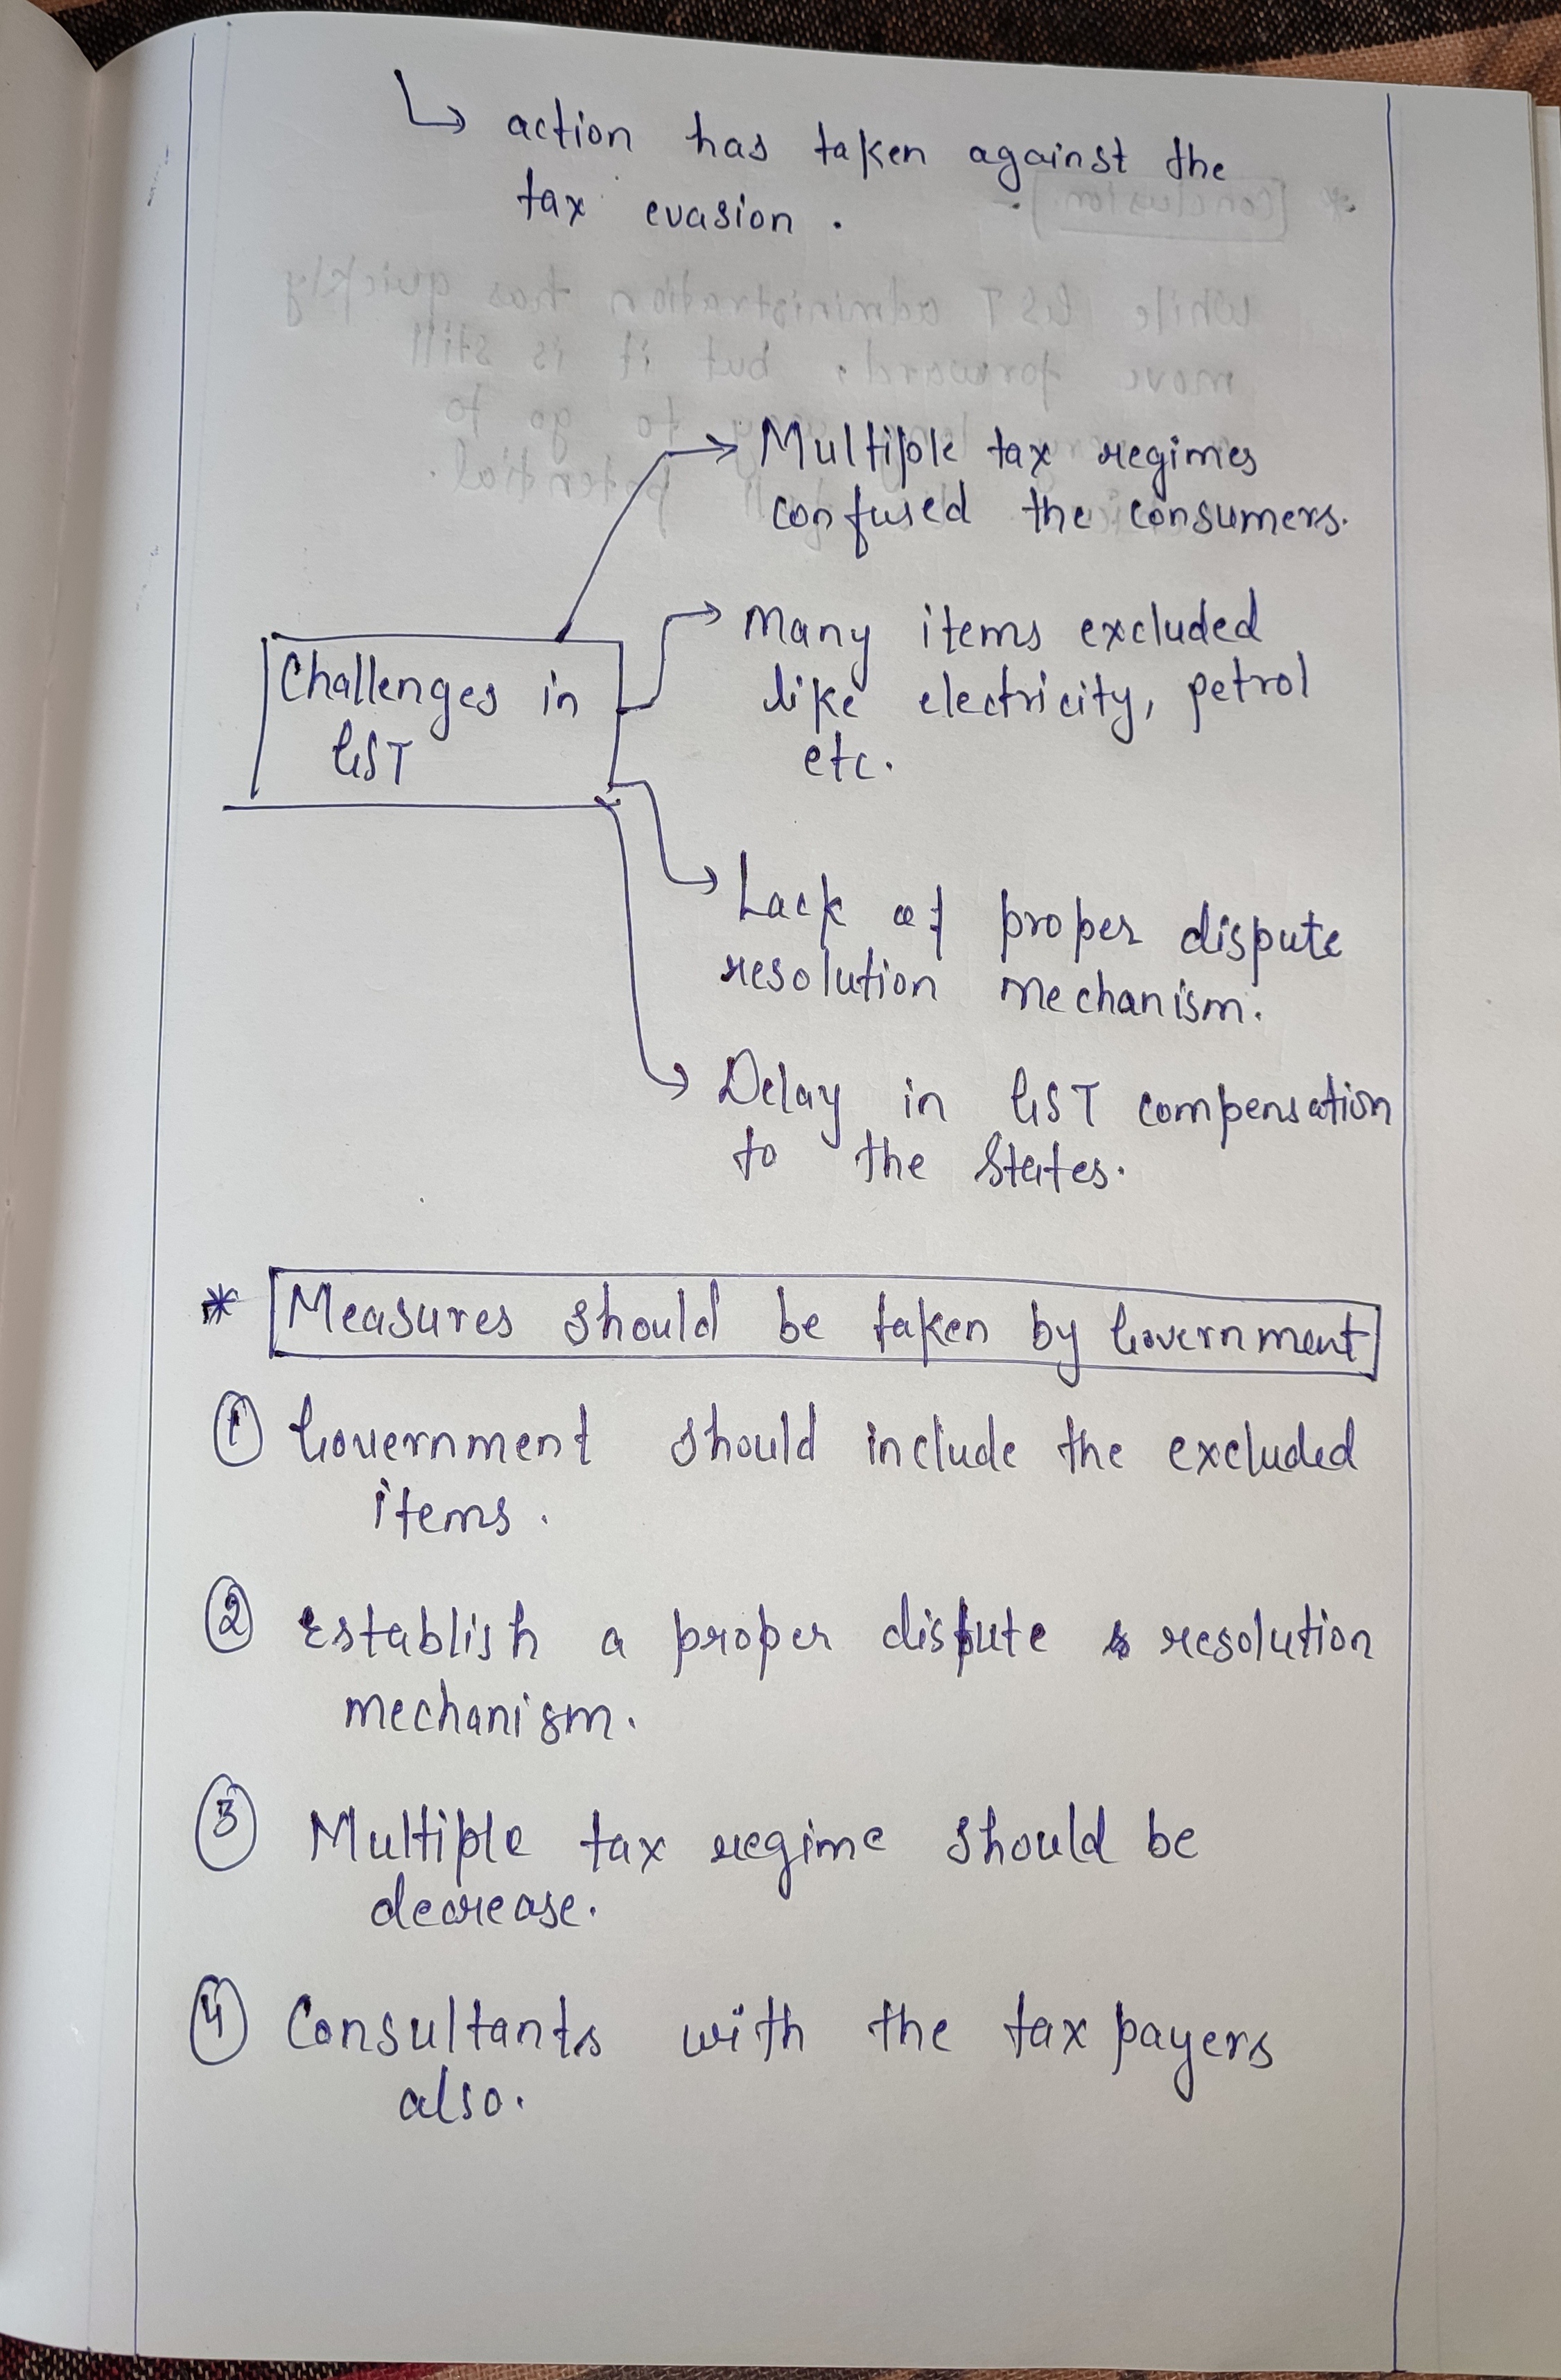 ↳ action has taken against the
tax evasion.
Challenges in
GST
→ Multiple tax regimes
confused the consumers.
→ Many items excluded
like electricity, petrol
etc.
→ Lack of proper dispute
resolution mechanism.
→ Delay in GST compensation
to the States.
* Measures should be taken by Government
① Government should include the excluded
items.
② Establish a proper dispute resolution
mechanism.
③ Multiple tax regime should be
decrease.
④ Consultants with the tax payers
also.